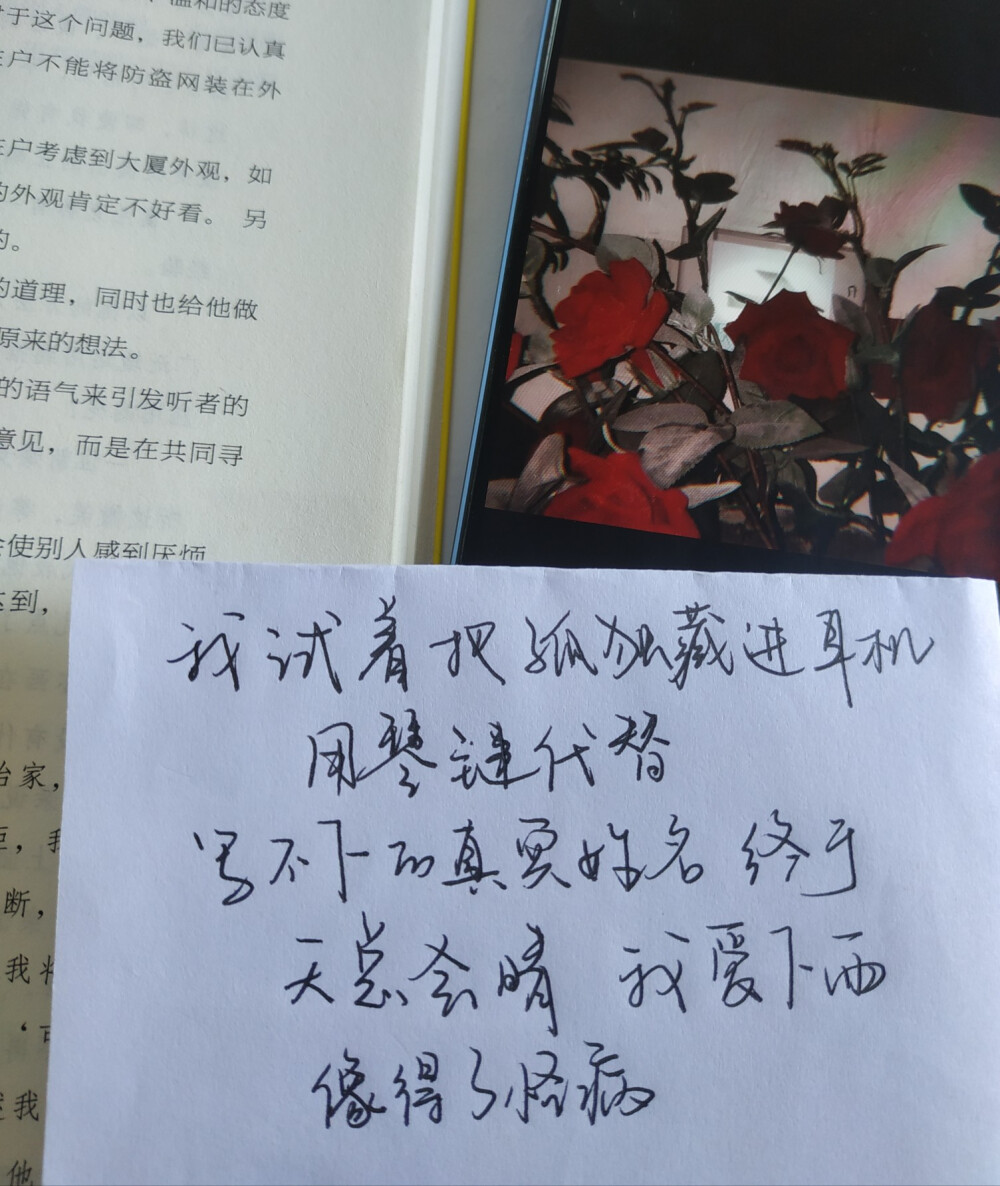 温和的态度
于这个问题，我们已认真
户不能将防盗网装在外
户考虑到大厦外观，如
外观肯定不好看。 另
的。
的道理，同时也给他做
原来的想法。
的语气来引发听者的
意见，而是在共同寻
使别人感到厌烦
到，
家，
，我
断，
我将
‘可
我
他
我试着把孤独藏进耳机
用琴键代替
写不下的真实姓名 终于
天总会晴 我爱下雨
像得了怪病